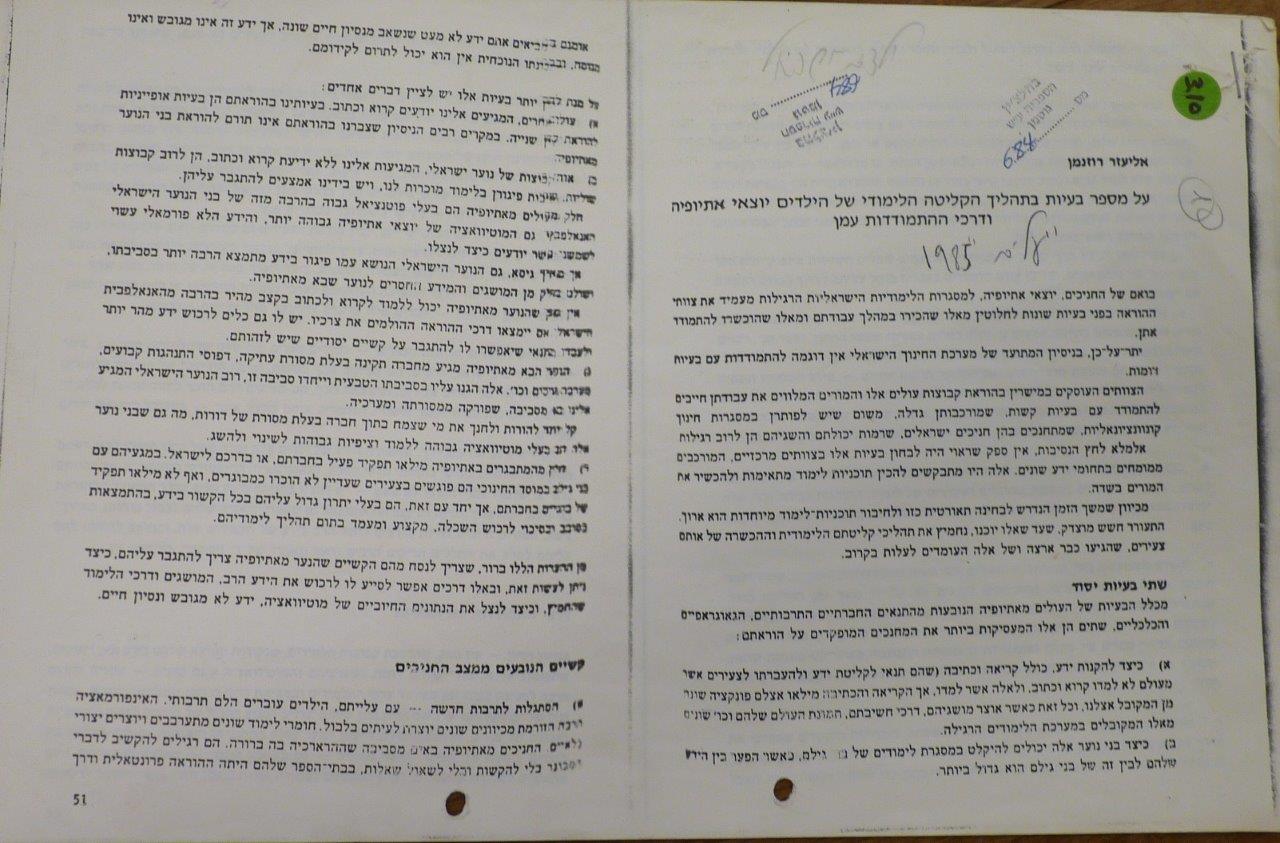 310
אליעזר רוזנמן
על מספר בעיות בתהליך הקליטה הלימודי של הילדים יוצאי אתיופיה
ודרכי ההתמודדות עמן
1985
בואם של החניכים, יוצאי אתיופיה, למסגרות הלימודיות הישראליות הרגילות מעמיד את צוותי
ההוראה בפני בעיות שונות לחלוטין מאלו שהכירו במהלך עבודתם ומאלו שהוכשרו להתמודד
אתן.
יתר־על־כן, בניסיון המתועד של מערכת החינוך הישראלי אין דוגמה להתמודדות עם בעיות
דומות.
הצוותים העוסקים במישרין בהוראת קבוצות עולים אלו והמורים המלווים את עבודתן חייבים
להתמודד עם בעיות קשות, שמורכבותן גדלה, משום שיש לפותרן במסגרות חינוך
קונוונציונאליות, שמתחנכים בהן חניכים ישראלים, שרמות יכולתם והשגיהם הן לרוב רגילות
אלמלא לחץ הנסיבות, אין ספק שראוי היה לבחון בעיות אלו בצוותים מרכזיים, המורכבים
ממומחים בתחומי ידע שונים. אלה היו מתבקשים להכין תוכניות לימוד מתאימות ולהכשיר את
המורים בשדה.
מכיוון שמשך הזמן הנדרש לבחינה תאורטית כזו ולחיבור תוכניות־לימוד מיוחדות הוא ארוך,
התעורר חשש מוצדק, שעד שאלו יוכנו, נחמיץ את תהליכי קליטתם הלימודית וההכשרה של אותם
צעירים, שהגיעו כבר ארצה ושל אלה העומדים לעלות בקרוב.
שתי בעיות יסוד
מכלל הבעיות של העולים מאתיופיה הנובעות מהתנאים החברתיים התרבותיים, הגאוגראפיים
והכלכליים, שתים הן אלו המעסיקות ביותר את המחנכים המופקדים על הוראתם:
א) כיצד להקנות ידע, כולל קריאה וכתיבה (שהם תנאי לקליטת ידע ולהעברתו לצעירים אשר
מעולם לא למדו קרוא וכתוב, ולאלה אשר למדו, אך הקריאה והכתיבה מילאו אצלם פונקציה שונה
מן המקובל אצלנו, וכל זאת כאשר אוצר מושגיהם, דרכי חשיבתם, תמונת העולם שלהם וכו' שונים
מאלו המקובלים במערכת הלימודים הרגילה.
ב) כיצד בני נוער אלה יכולים להיקלט במסגרת לימודים של בני גילם, כאשר הפער בין הידע
שלהם לבין זה של בני גילם הוא גדול ביותר.
אומנם מביאים אתם ידע לא מעט שנשאב מנסיון חיים שונה, אך ידע זה אינו מגובש ואינו
הנוכחית אין הוא יכול לתרום לקידומם.
על מנת להבין יותר בעיות אלו יש לציין דברים אחדים:
א) המגיעים אלינו יודעים קרוא וכתוב. בעיותינו בהוראתם הן בעיות אופייניות
להוראת שפה שנייה. במקרים רבים הניסיון שצברנו בהוראתם אינו תורם להוראת בני הנוער
מאתיופיה.
ב) אותן קבוצות של נוער ישראלי, המגיעות אלינו ללא ידיעת קרוא וכתוב, הן לרוב קבוצות
פיגורן בלימוד מוכרות לנו, ויש בידינו אמצעים להתגבר עליהן.
חלק מהעולים מאתיופיה הם בעלי פוטנציאל גבוה בהרבה מזה של בני הנוער הישראלי
גם המוטיוואציה של יוצאי אתיופיה גבוהה יותר, והידע הלא פורמאלי עשוי
יודעים כיצד לנצלו.
אך מאידך גיסא, גם הנוער הישראלי הנושא עמו פיגור בידע מתמצא הרבה יותר בסביבתו,
מן המושגים והמידע החסרים לנוער שבא מאתיופיה.
שהנוער מאתיופיה יכול ללמוד לקרוא ולכתוב בקצב מהיר בהרבה מהאנאלפבית
הישראלי אם יימצאו דרכי ההוראה ההולמים את צרכיו. יש לו גם כלים לרכוש ידע מהר יותר
שיאפשרו לו להתגבר על קשיים יסודיים שיש לזהותם.
ג) הנוער הבא מאתיופיה מגיע מחברה תקינה בעלת מסורת עתיקה, דפוסי התנהגות קבועים,
וכו'. אלה הגנו עליו בסביבתו הטבעית וייחדו סביבה זו, רוב הנוער הישראלי המגיע
אלינו בא מסביבה, שפורקה ממסורתה ומערכיה.
קל יותר להורות ולחנך את מי שצמח בתוך חברה בעלת מסורת של דורות, מה גם שבני נוער
אלה הם בעלי מוטיוואציה גבוהה ללמוד וציפיות גבוהות לשינוי ולהשג.
ד) חלק מהמתבגרים באתיופיה מילאו תפקיד פעיל בחברתם, או בדרכם לישראל. במגעיהם עם
בני גילם במוסד החינוכי הם פוגשים בצעירים שעדיין לא הוכרו כמבוגרים, ואף לא מילאו תפקיד
של בוגרים בחברתם, אך יחד עם זאת, הם בעלי יתרון גדול עליהם בכל הקשור בידע, בהתמצאות
ובסיכוי לרכוש השכלה, מקצוע ומעמד בתום תהליך לימודיהם.
מן ההערות הללו ברור, שצריך לנסח מהם הקשיים שהנער מאתיופיה צריך להתגבר עליהם, כיצד
ניתן לעשות זאת, ובאלו דרכים אפשר לסייע לו לרכוש את הידע הרב, המושגים ודרכי הלימוד
שהחמיץ, וכיצד לנצל את הנתונים החיוביים של מוטיוואציה, ידע לא מגובש ונסיון חיים.
קשיים הנובעים ממצב החניכים
א) הסתגלות לתרבות חדשה — עם עלייתם, הילדים עוברים הלם תרבותי. האינפורמאציה
הרבה הזורמת מכיוונים שונים יוצרת לעיתים בלבול. חומרי לימוד שונים מתערבבים ויוצרים יצורי
כלאיים. החניכים מאתיופיה באים מסביבה שההרארכיה בה ברורה. הם רגילים להקשיב לדברי
המבוגר בלי להקשות ובלי לשאול שאלות, בבתי־הספר שלהם היתה ההוראה פרונטאלית ודרך
51